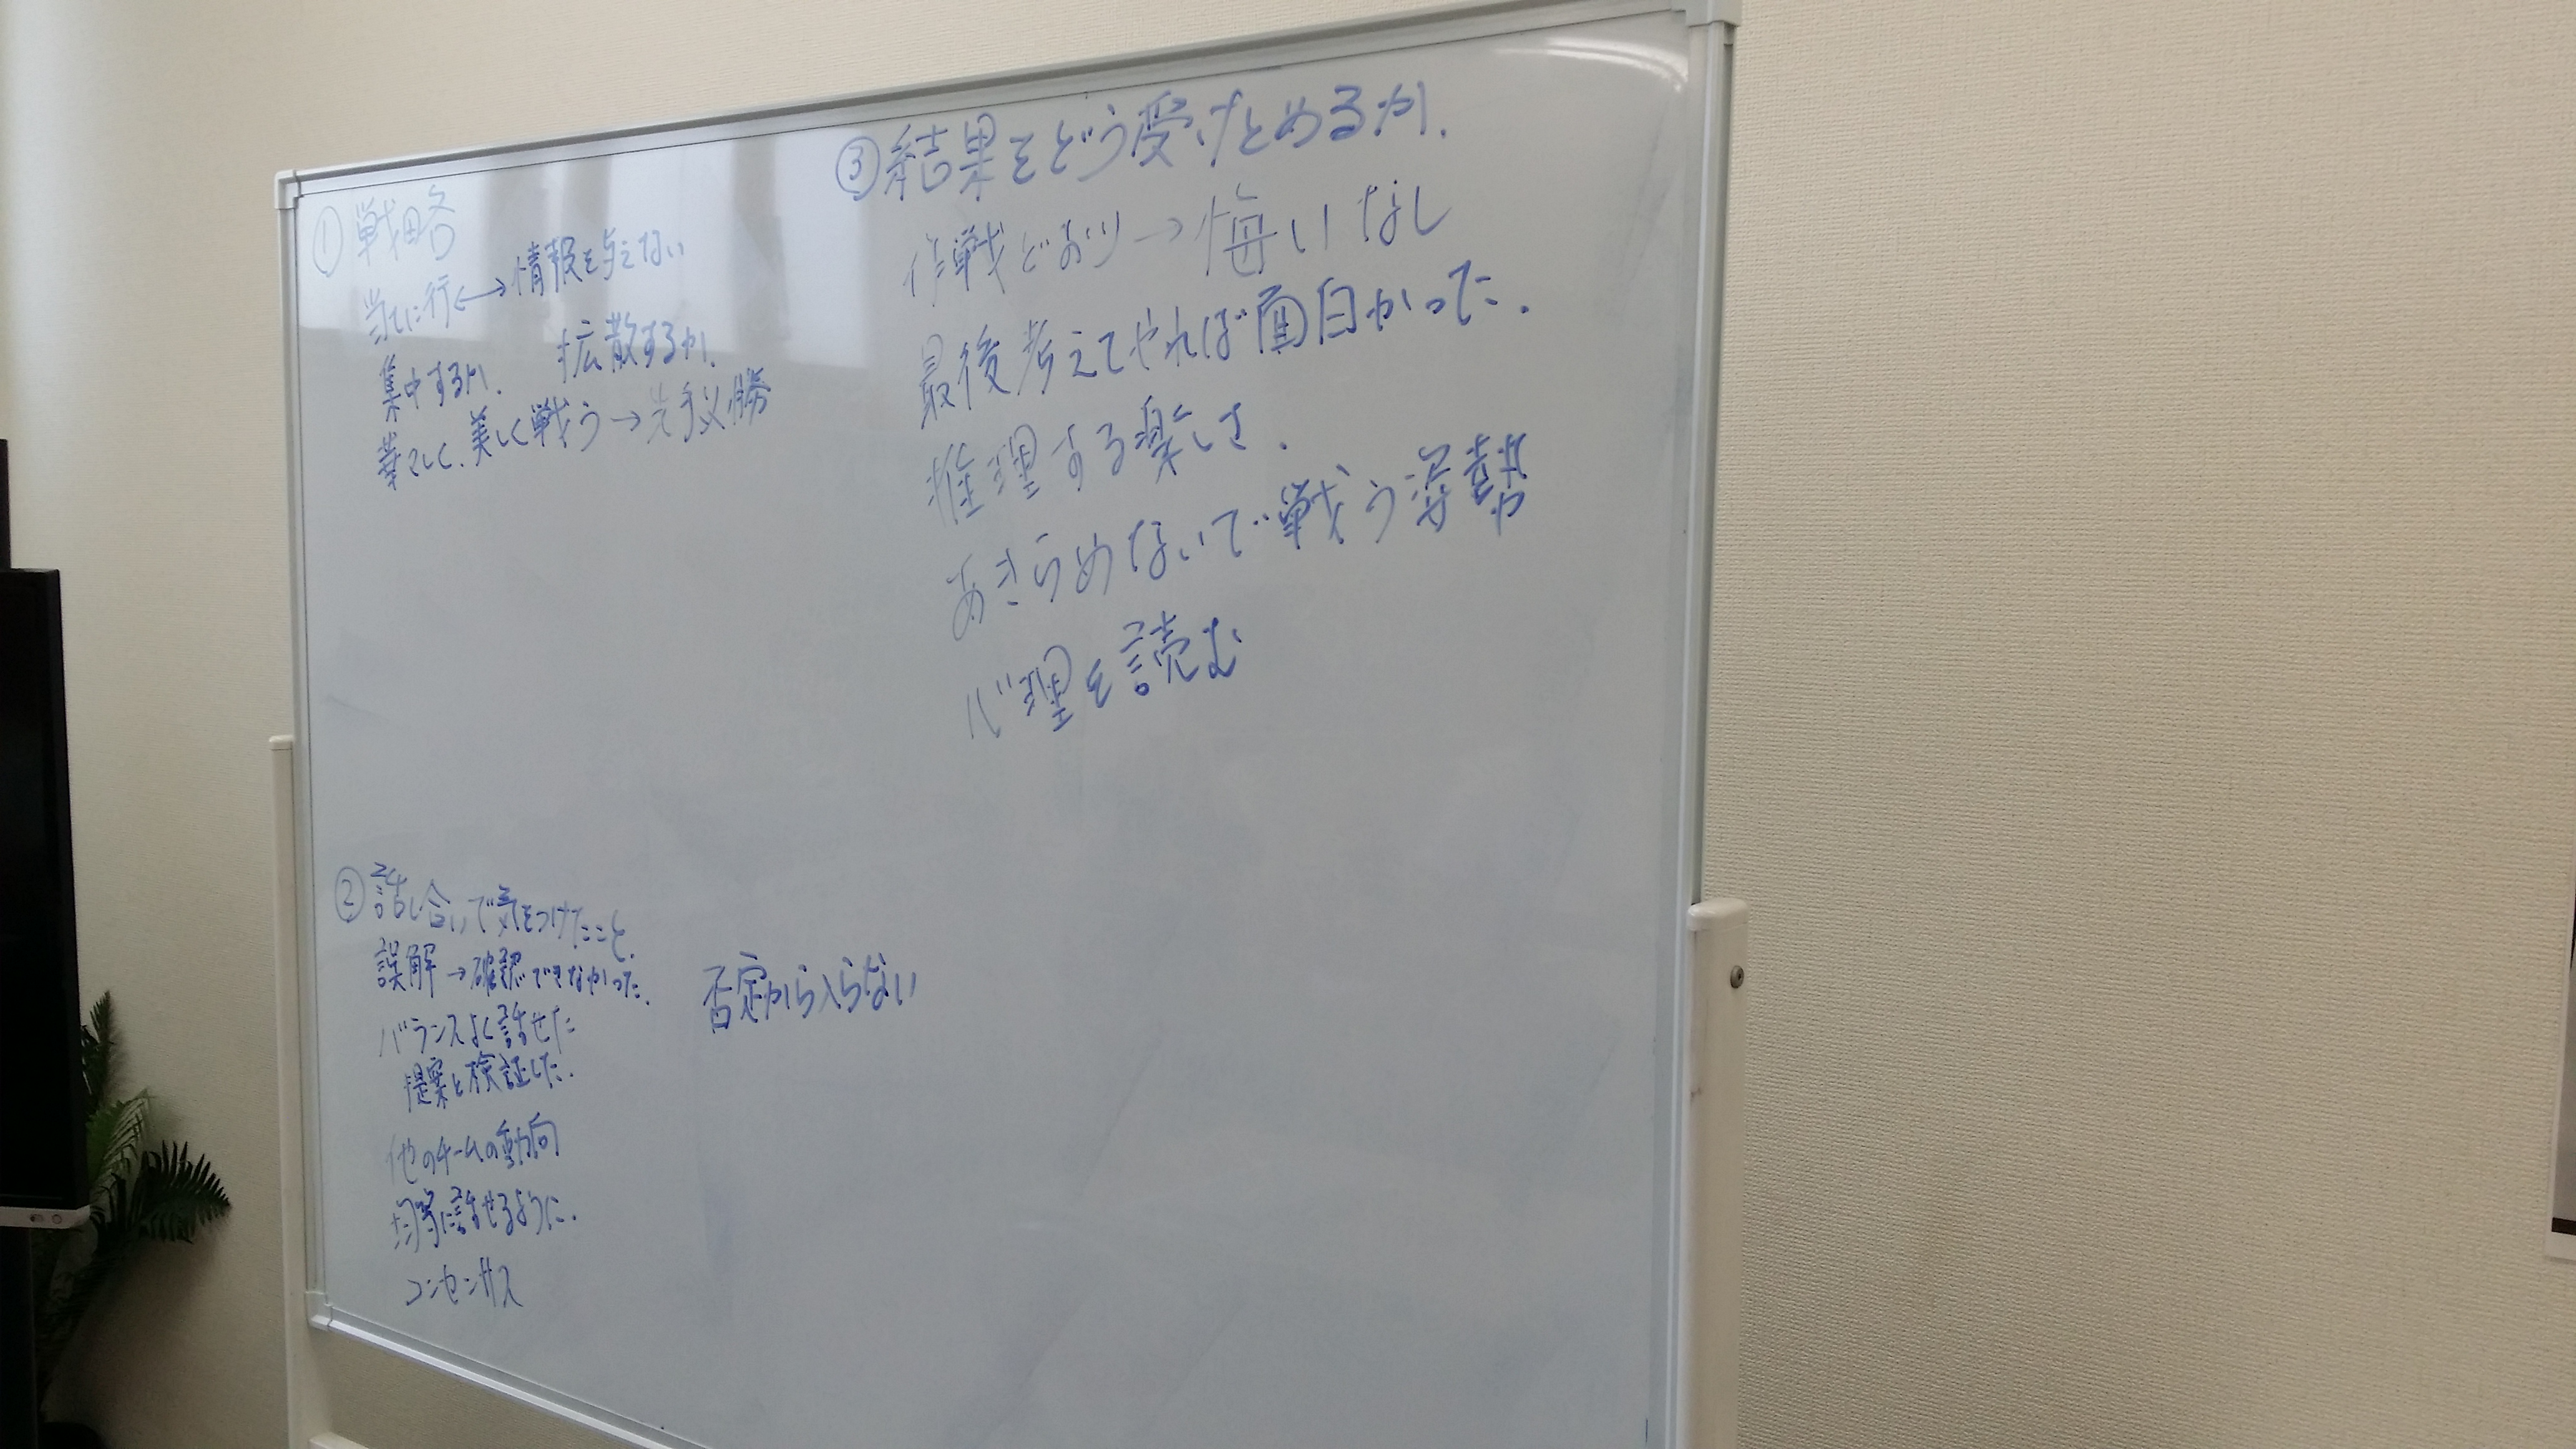 ①戦略
当てに行く←→情報を与えない
集中するか. 拡散するか.
華々しく、美しく戦う→先手必勝
②話し合いで気をつけたこと.
誤解→確認できなかった.
バランスよく話せた
提案と検証した.
他のチームの動向
均等に話せるように.
コンセンサス
否定から入らない
③結果をどう受けとめるか.
作戦どおり→悔いなし
最後考えてやれば面白かった.
推理する楽しさ.
あきらめないで戦う姿勢
心理を読む